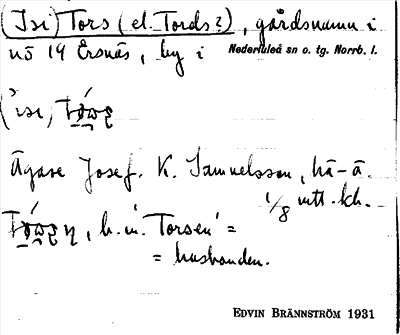 (Isi) Tors (el. Tords?), gårdsnamn i
nö 19 Ersnäs, by i Nederluleå sn o. tg. Norrb. l.
Ägare Josef. K. Samuelsson, hä-ä.
1/8 mtt. kb.
b. m. 'Torsen' =
= husbonden.
EDVIN BRÄNNSTRÖM 1931